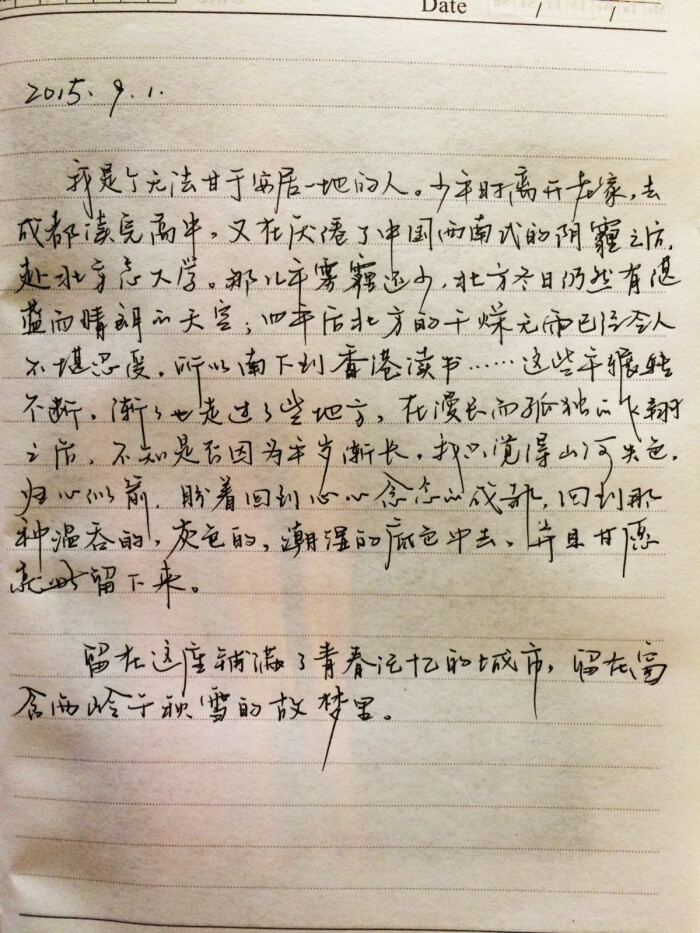 Date / /
2015. 9. 1.
我是个无法甘于安居一地的人。少年时离开老家，去
成都读完高中。又在厌倦了中国西南式的阴霾之后，
赴北方念大学。那几年雾霾还少，北方冬日仍然有湛
蓝而晴朗的天空；四年后北方的干燥无雨已经令人
不堪忍受，所以南下到香港读书……这些年辗转
不断，渐渐也走过了些地方，在漫长而孤独的飞翔
之后，不知是否因为年岁渐长，我只觉得山河失色，
归心似箭，盼着回到心心念念的成都，回到那
种温吞的，灰色的，潮湿的底色中去，并且甘愿
就此留下来。
留在这座铺满了青春记忆的城市，留在窗
含西岭千秋雪的故梦里。